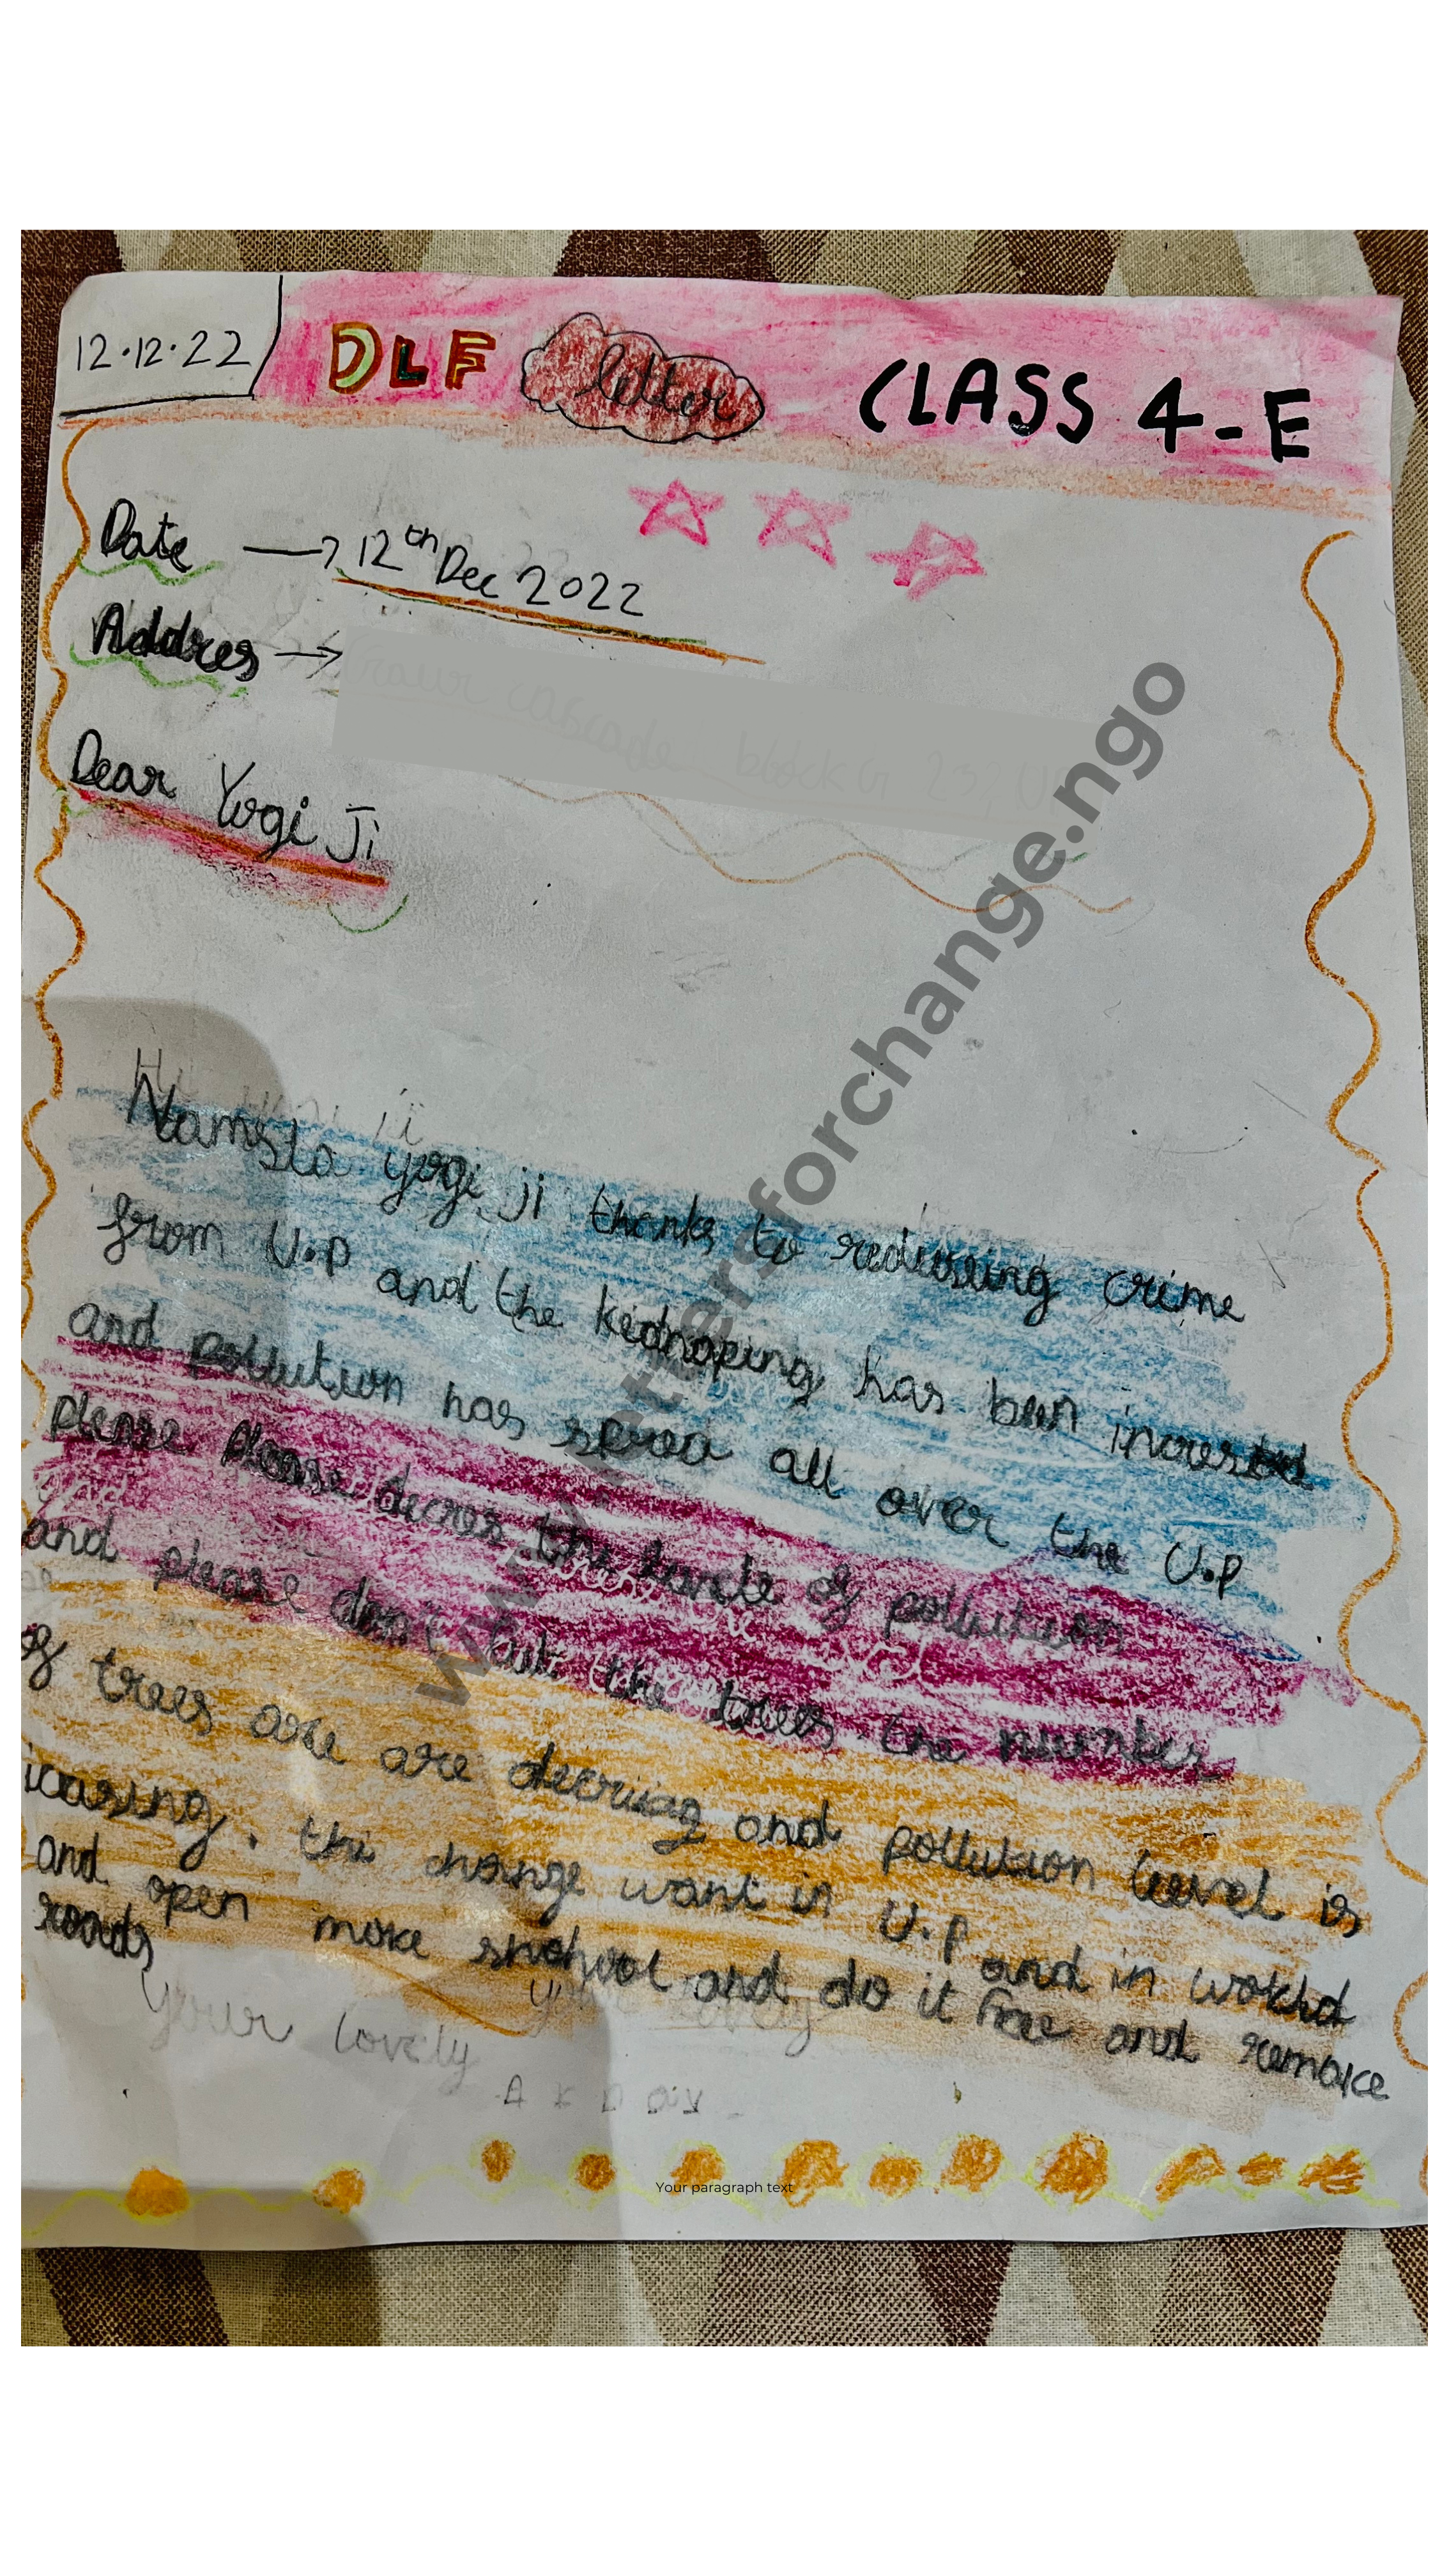 12.12.22 DLF letter CLASS 4-E
Date → 12th Dec 2022
Addres →
Dear Yogi Ji
Namsta yogi ji thanks to redusing crime
from U.P and the kidnaping has been incresed
and pollution has sproa all over the U.P
please please decres the of pollution
and please don't cut the trees the number
of trees are are decriasg and pollution level is
icasing. the change want in U.P and in workld
and open more snchool and do it free and remake
roads
Your lovely
www.lettersforchange.ngo
Your paragraph text